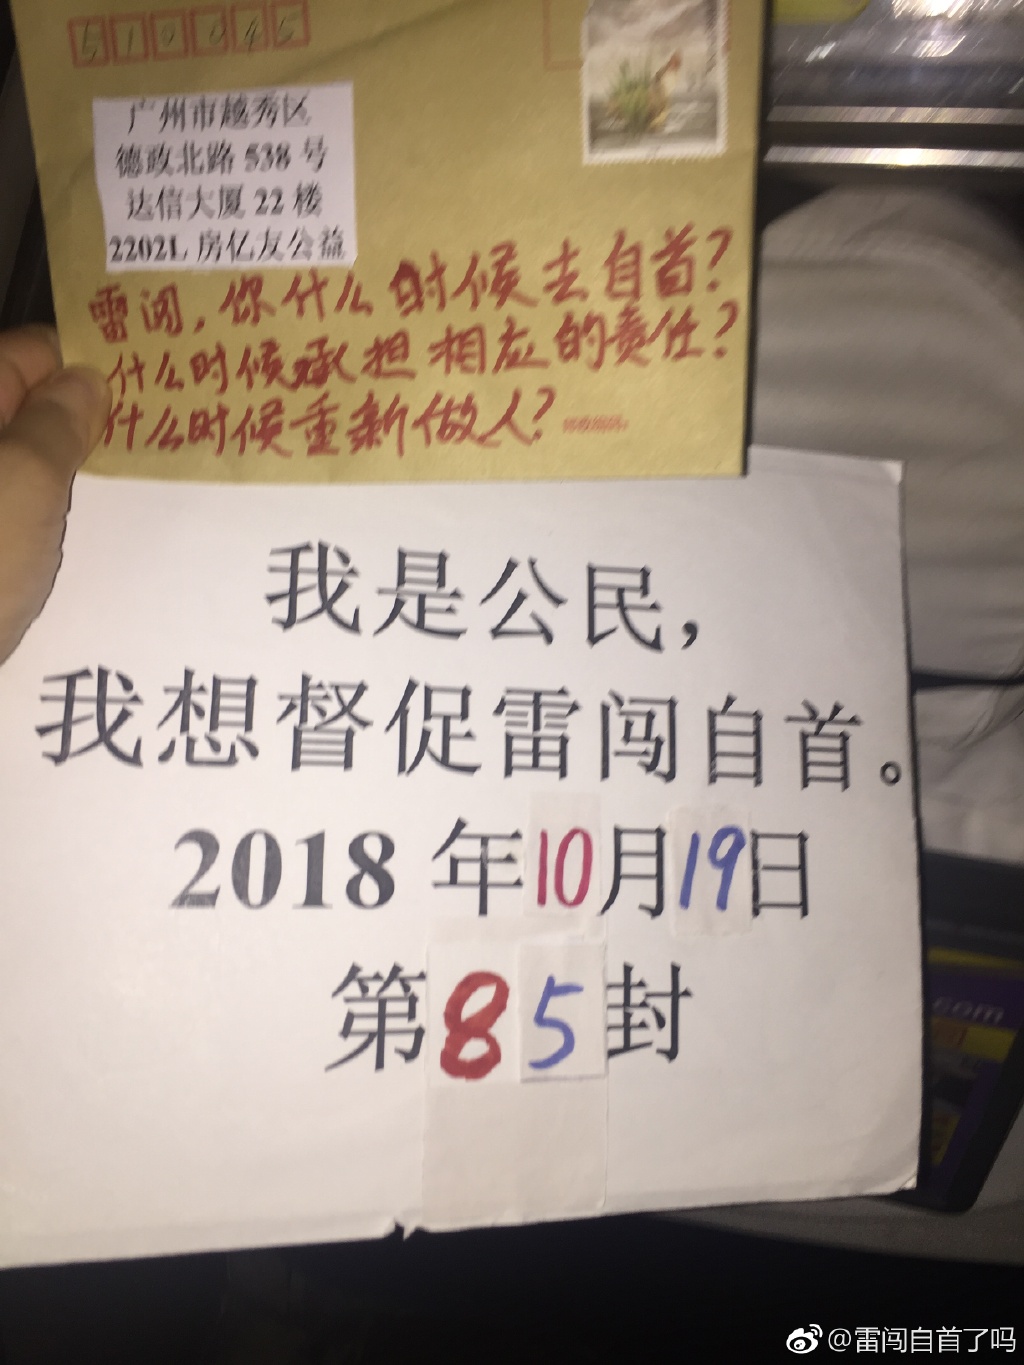 510045
广州市越秀区
德政北路 538 号
达信大厦 22 楼
2202L 房亿友公益
雷闯，你什么时候去自首？
什么时候承担相应的责任？
什么时候重新做人？……
我是公民，
我想督促雷闯自首。
2018 年10月19日
第85封
.com
@雷闯自首了吗